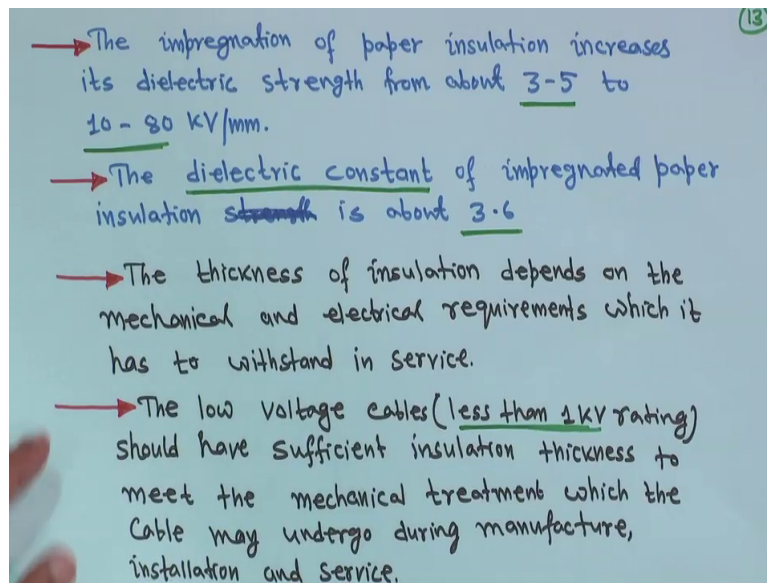 13
→ The impregnation of paper insulation increases
its dielectric strength from about 3-5 to
10 - 80 KV/mm.
→ The dielectric constant of impregnated paper
insulation strength is about 3.6
→ The thickness of insulation depends on the
mechanical and electrical requirements which it
has to withstand in service.
→ The low voltage cables (less than 1KV rating)
should have sufficient insulation thickness to
meet the mechanical treatment which the
Cable may undergo during manufacture,
installation and service.